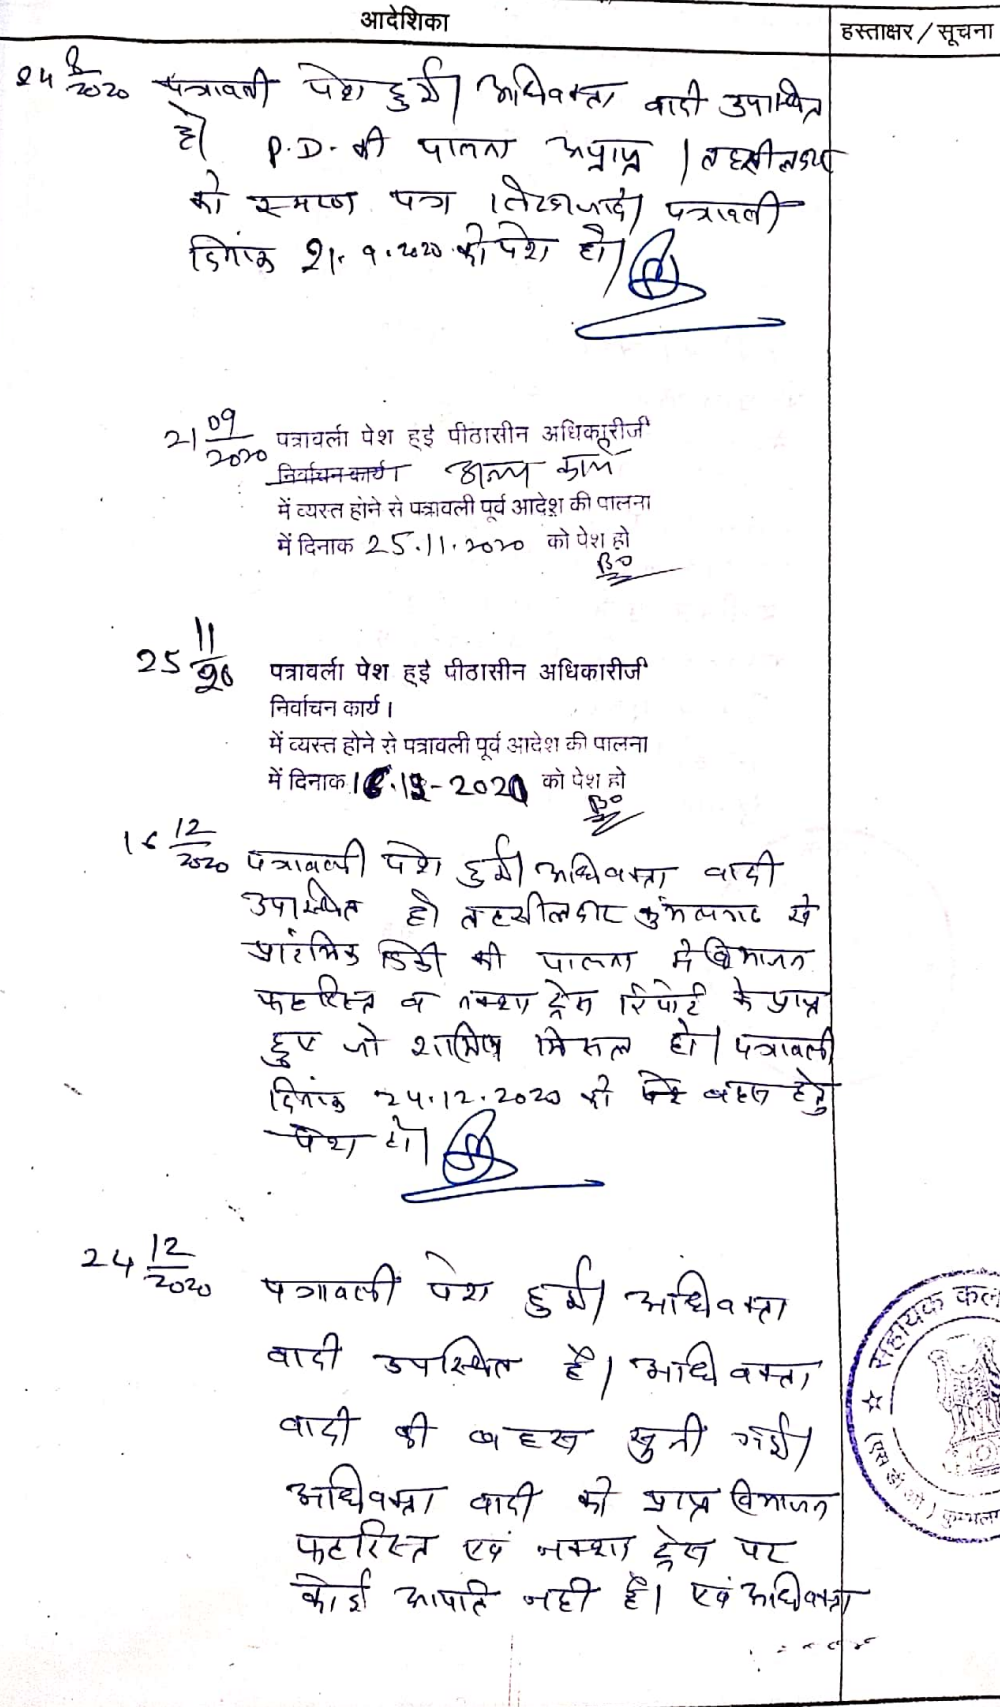 आदेशिका
हस्ताक्षर / सूचना
24 8/2020 पत्रावली पेश हुई। अधिवक्ता वादी उपस्थित
है। P.D. की पालना अप्राप्त। तहसीलदार
को स्मरण पत्र लिखा जावे। पत्रावली
दिनांक 21.9.2020 को पेश हो।
21 09/2020 पत्रावली पेश हुई पीठासीन अधिकारीजी
निर्वाचन कार्य। अन्य कार्य
में व्यस्त होने से पत्रावली पूर्व आदेश की पालना
में दिनाक 25.11.2020 को पेश हो
25 11/20 पत्रावली पेश हुई पीठासीन अधिकारीजी
निर्वाचन कार्य।
में व्यस्त होने से पत्रावली पूर्व आदेश की पालना
में दिनाक 16.12-2020 को पेश हो
16 12/2020 पत्रावली पेश हुई। अधिवक्ता वादी
उपस्थित है। तहसीलदार कुंभलगढ से
प्रारंभिक डिक्री की पालना में विभाजन
फहरिस्त व नक्शा ट्रेस रिपोर्ट के प्राप्त
हुए जो शामिल मिसल हो। पत्रावली
दिनांक 24.12.2020 को बहस हेतु
पेश हो।
24 12/2020 पत्रावली पेश हुई। अधिवक्ता
वादी उपस्थित है। अधिवक्ता
वादी की बहस सुनी गई।
अधिवक्ता वादी को प्राप्त विभाजन
फहरिस्त एवं नक्शा ट्रेस पर
कोई आपति नही है। एवं अधिवक्ता
सहायक कल
(एस डी ओ) कुम्भलग